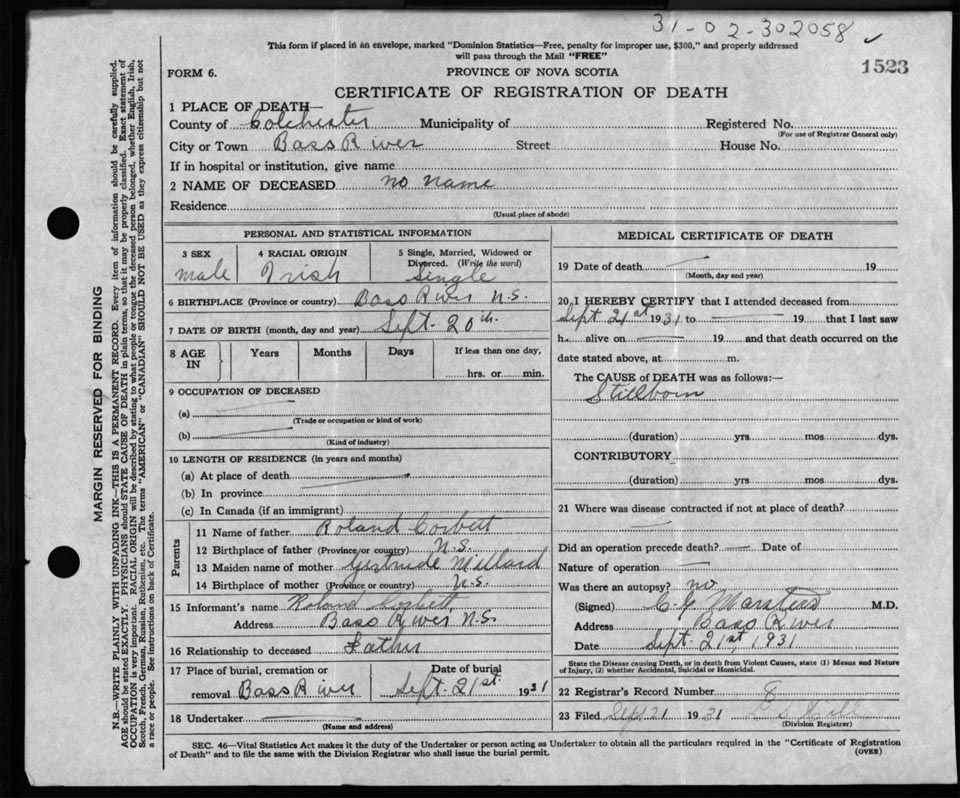 31-02-302058 ✓
This form if placed in an envelope, marked "Dominion Statistics—Free, penalty for improper use, $300," and properly addressed
will pass through the Mail "FREE"
1523
FORM 6.
PROVINCE OF NOVA SCOTIA
CERTIFICATE OF REGISTRATION OF DEATH
1 PLACE OF DEATH—
County of Colchester Municipality of Registered No.
(For use of Registrar General only)
City or Town Bass River Street House No.
If in hospital or institution, give name
2 NAME OF DECEASED no name
Residence
(Usual place of abode)
PERSONAL AND STATISTICAL INFORMATION
3 SEX 4 RACIAL ORIGIN 5 Single, Married, Widowed or
Divorced. (Write the word)
male Irish Single
6 BIRTHPLACE (Province or country) Bass River N.S.
7 DATE OF BIRTH (month, day and year) Sept. 20th.
8 AGE IN Years Months Days If less than one day,
hrs. or min.
9 OCCUPATION OF DECEASED
(a)
(Trade or occupation or kind of work)
(b)
(Kind of industry)
10 LENGTH OF RESIDENCE (in years and months)
(a) At place of death
(b) In province
(c) In Canada (if an immigrant)
Parents
11 Name of father Roland Corbett
12 Birthplace of father (Province or country) N.S.
13 Maiden name of mother Gertrude Millard
14 Birthplace of mother (Province or country) N.S.
15 Informant's name Roland Corbett
Address Bass River N.S.
16 Relationship to deceased Father
17 Place of burial, cremation or Date of burial
removal Bass River Sept. 21st 1931
18 Undertaker
(Name and address)
MEDICAL CERTIFICATE OF DEATH
19 Date of death 19
(Month, day and year)
20 I HEREBY CERTIFY that I attended deceased from
Sept 21st 1931 to 19 that I last saw
h alive on 19 and that death occurred on the
date stated above, at m.
The CAUSE of DEATH was as follows:—
Stillborn
(duration) yrs. mos dys.
CONTRIBUTORY
(duration) yrs. mos dys.
21 Where was disease contracted if not at place of death?
Did an operation precede death? Date of
Nature of operation
Was there an autopsy? no
(Signed) M.D.
Address Bass River
Date Sept. 21st, 1931
State the Disease causing Death, or in death from Violent Causes, state (1) Means and Nature
of Injury, (2) whether Accidental, Suicidal or Homicidal.
22 Registrar's Record Number 8
23 Filed Sept 21 1931
(Division Registrar)
SEC. 46—Vital Statistics Act makes it the duty of the Undertaker or person acting as Undertaker to obtain all the particulars required in the "Certificate of Registration
of Death" and to file the same with the Division Registrar who shall issue the burial permit.
(OVER)
MARGIN RESERVED FOR BINDING
N.B.—WRITE PLAINLY WITH UNFADING INK—THIS IS A PERMANENT RECORD. Every item of information should be carefully supplied.
AGE should be stated EXACTLY. PHYSICIANS should STATE CAUSE OF DEATH in plain terms, so that it may be properly classified. Exact statement of
OCCUPATION is very important. RACIAL ORIGIN will be described by stating to what people or tongue the deceased person belonged, whether English, Irish,
Scotch, French, German, Russian, Ruthenian, etc. The terms "AMERICAN" or "CANADIAN" SHOULD NOT BE USED as they express citizenship but not
a race or people. See instructions on back of Certificate.